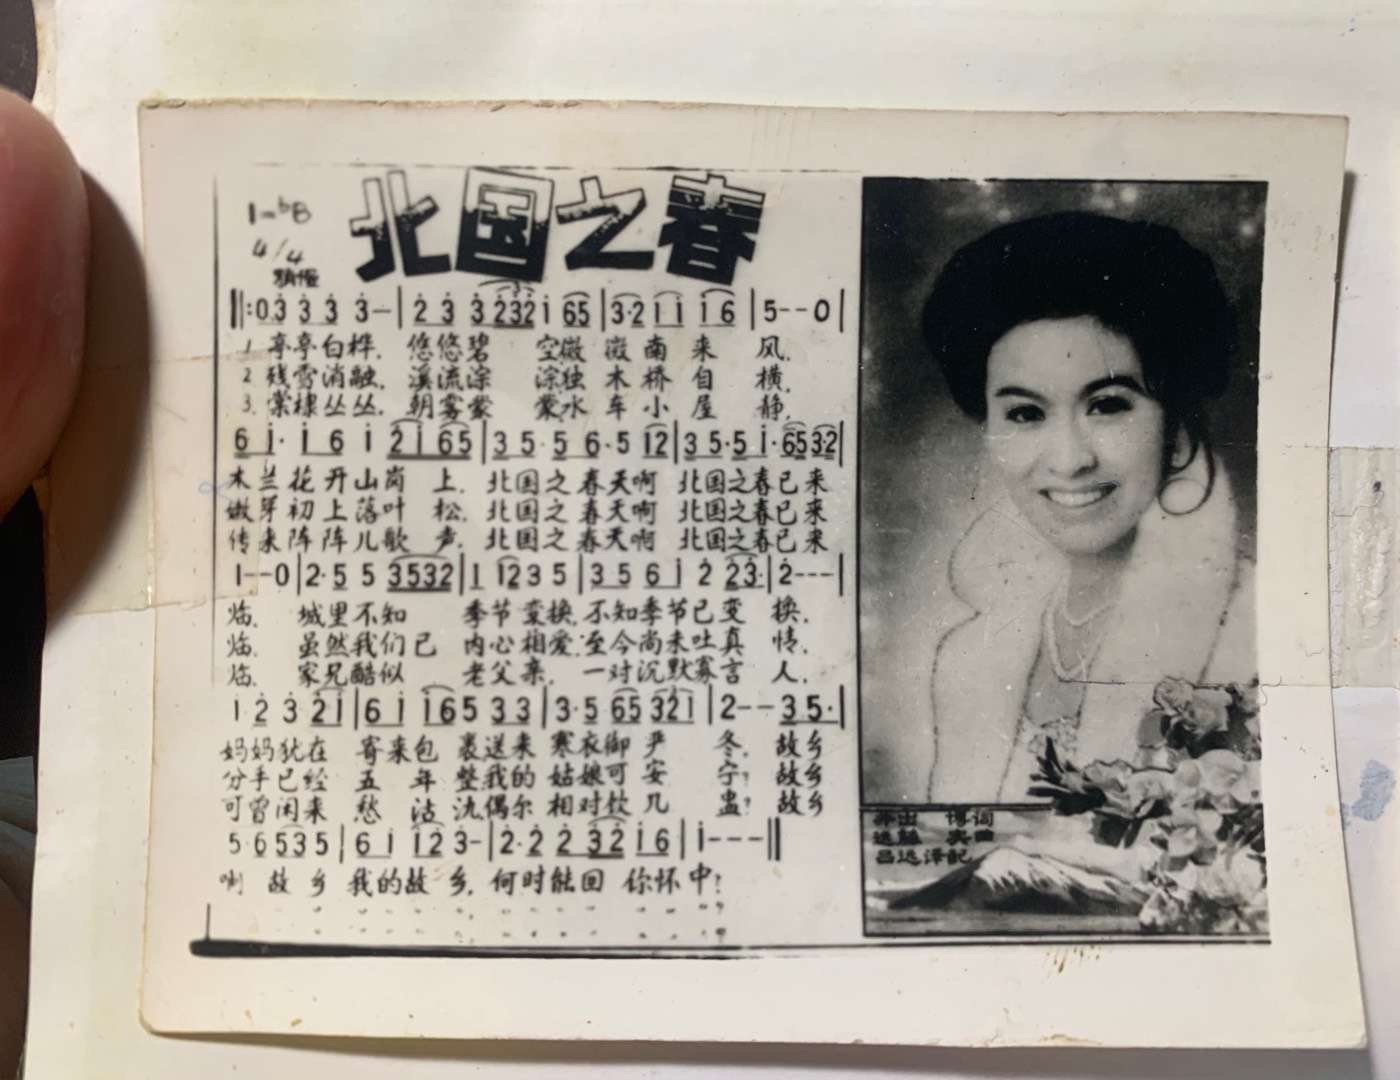 北国之春
1=bB
4/4
稍慢
‖:0 3 3 3 3-|2 3 3 232 i 65|3·2 i i i 6|5--0|
1. 亭亭白桦. 悠悠碧 空微 微南来 风.
2. 残雪消融. 溪流淙 淙独 木桥自 横.
3. 棠棣丛丛. 朝雾蒙 蒙水 车小屋 静.
6 i· i 6 i 2 i 65|3 5·5 6·5 i2|3 5·5 i·6532|
木兰花开山岗 上. 北国之 春天啊 北国之春已来
嫩芽初上落叶 松. 北国之 春天啊 北国之春已来
传来阵阵儿歌 声. 北国之 春天啊 北国之春已来
1--0|2·5 5 3532|1 1235|3 5 6 i 2 23·|2---|
临. 城里不知 季节变换. 不知季节已变 换.
临. 虽然我们已 内心相爱. 至今尚未吐真 情.
临. 家兄酷似 老父亲. 一对沉默寡言 人.
1 2 3 2i|6 i i65 3 3|3·5 65 32i|2--3 5·|
妈妈犹在 寄来包 裹送来 寒衣御严 冬. 故乡
分手已经 五 年 整我的 姑娘可安 宁? 故乡
可曾闲来 愁 沽 氿偶尔 相对饮几 盅? 故乡
5·6 53 5|6 i i2 3-|2·2 2 32 i6|i---‖
啊 故乡 我的故乡. 何时能回 你怀中?
博词
曲
吕远译配